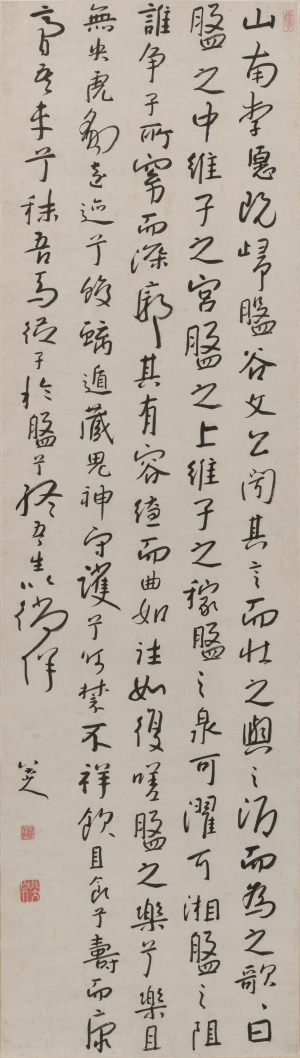 山南李愿既歸盤谷文公聞其言而壯之與之酒而為之歌〻曰
盤之中維子之宮盤之上維子之稼盤之泉可濯可湘盤之阻
誰爭子所窈而深廓其有容繚而曲如往如復嗟盤之樂兮樂且
無央虎豹遠迹兮蛟螭遁藏鬼神守護兮呵禁不祥飲且食兮壽而康
膏吾車兮秣吾馬從子於盤兮終吾生以徜徉
八大山人